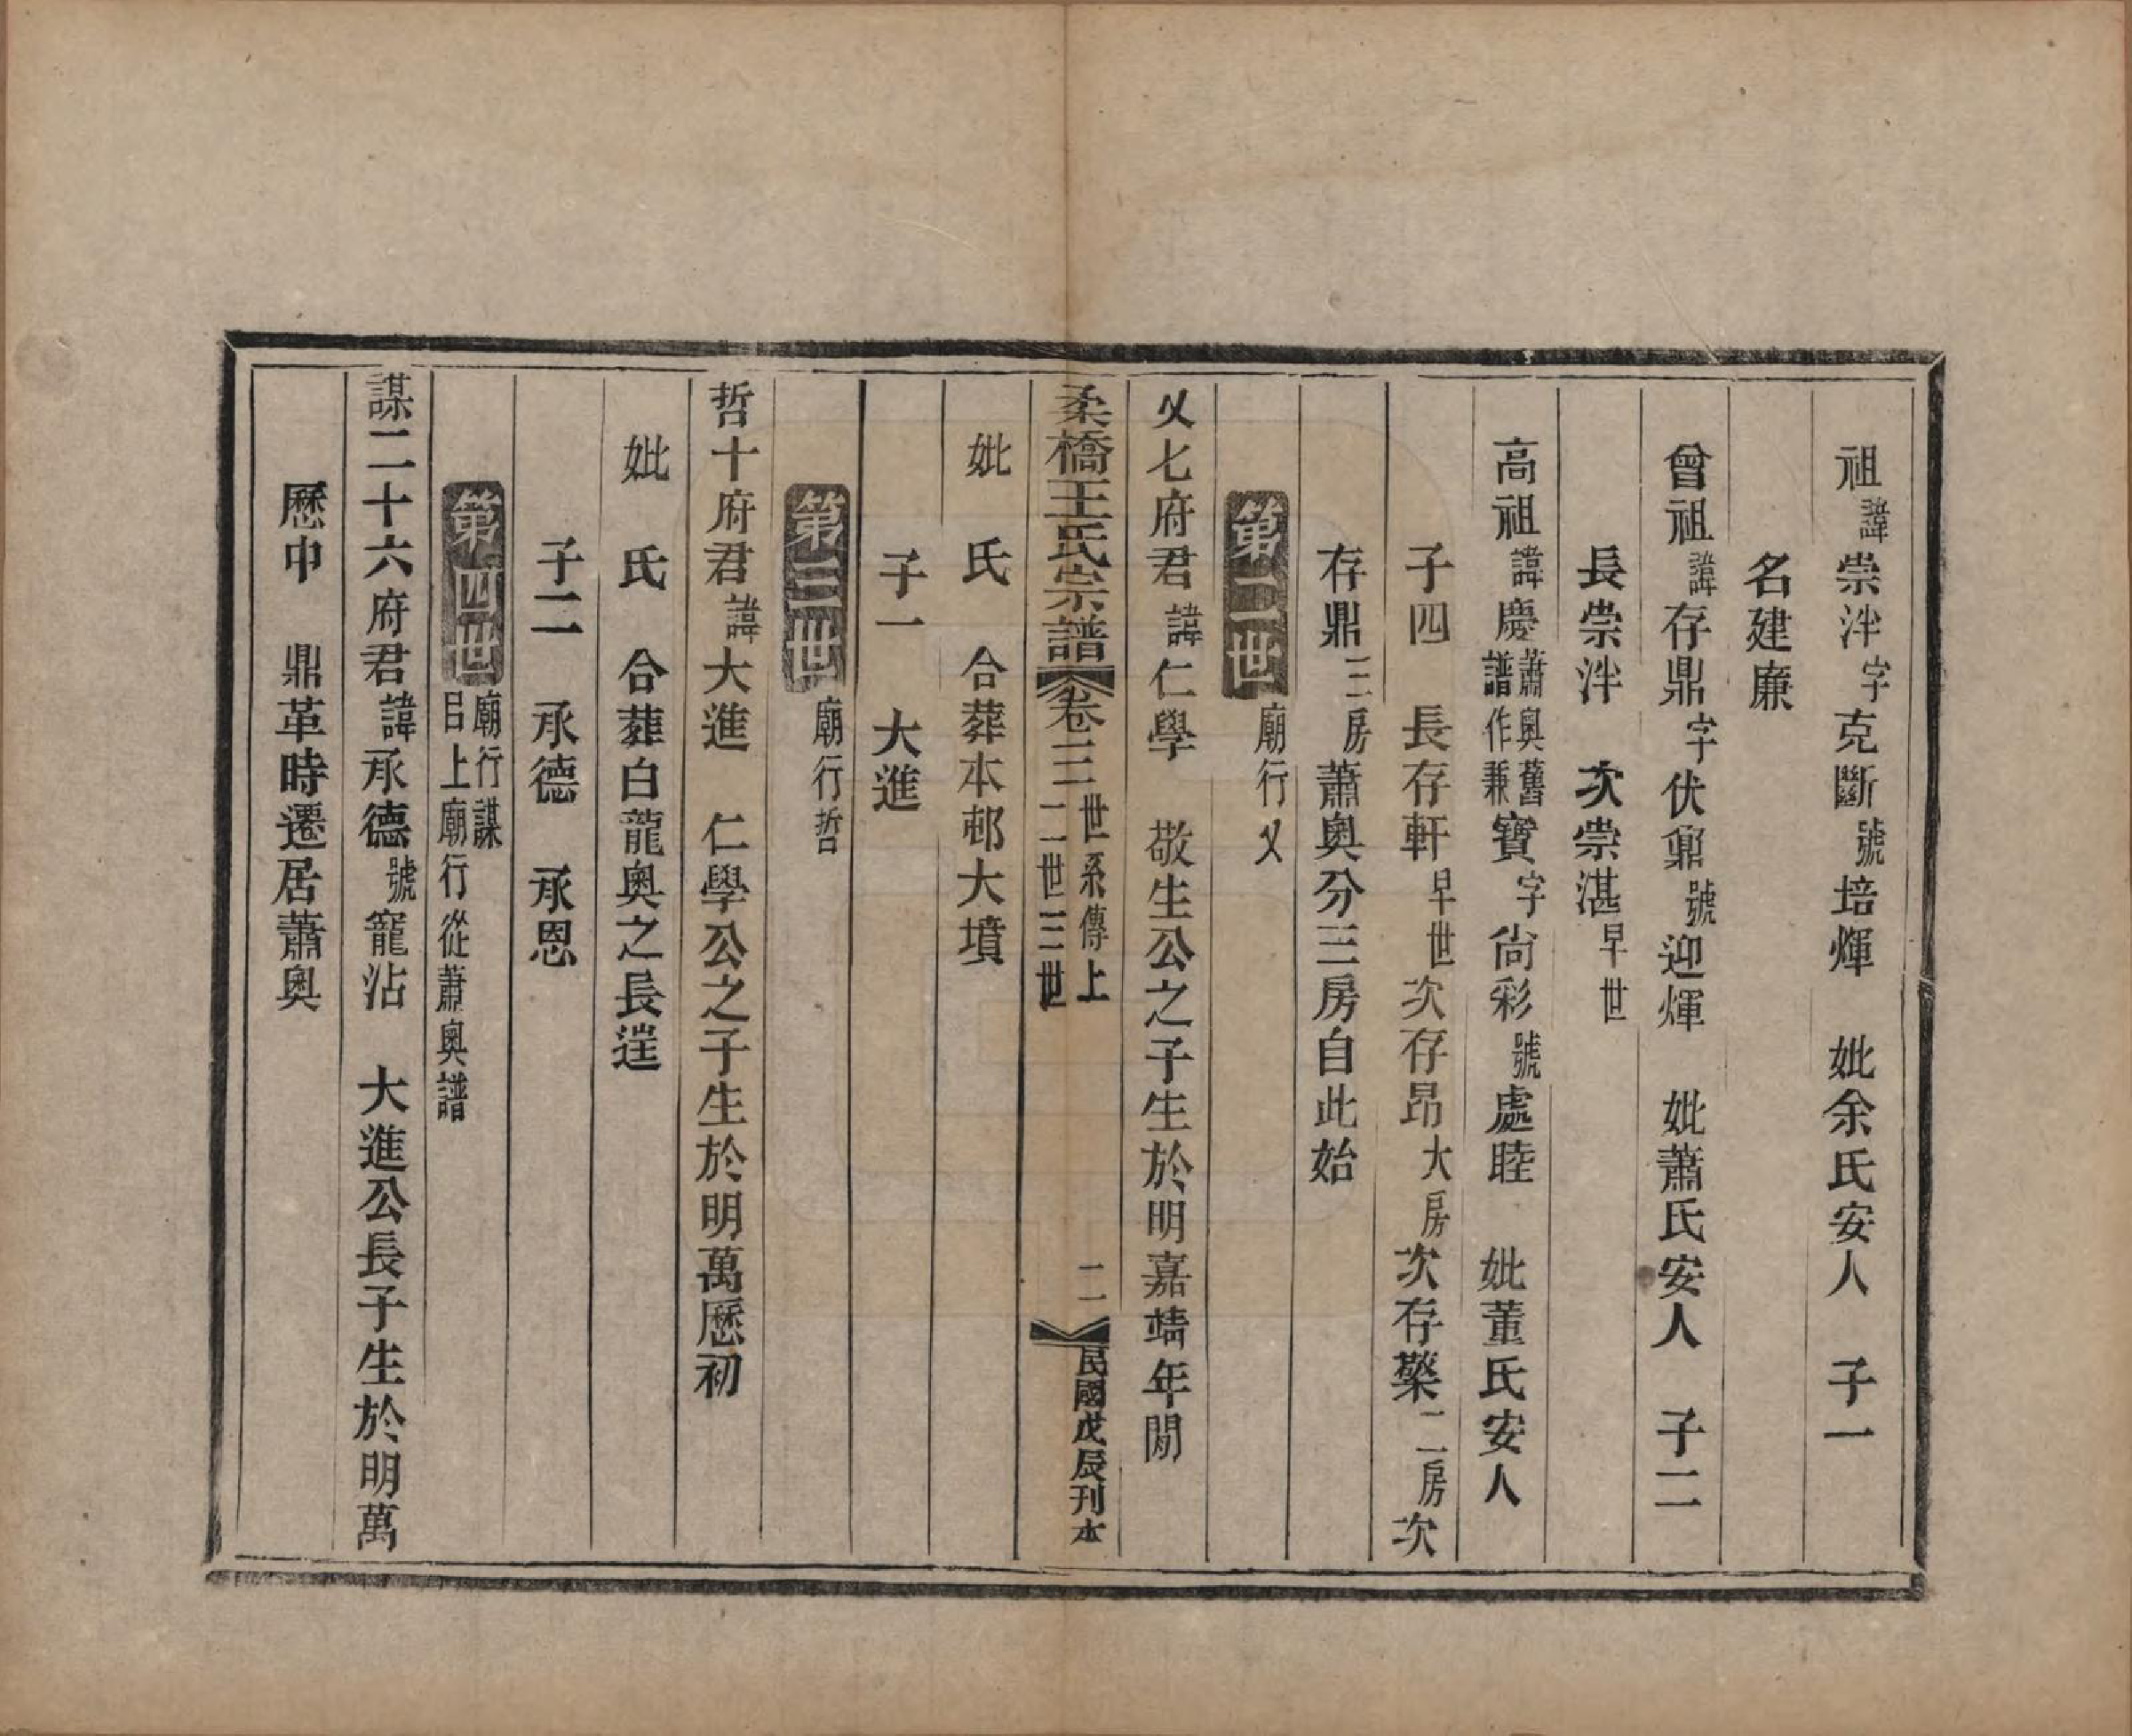 祖諱崇泮字克斷號培煇　妣余氏安人　子一
名建廉
曾祖諱存鼎字伏鼐號迎煇　妣蕭氏安人　子二
長崇泮　次崇湛早世
高祖諱慶蕭奧舊譜作兼寶字尙彩號處睦　妣董氏安人
子四　長存軒早世次存昂大房次存檠二房次
存鼎三房蕭奧分三房自此始
第二世廟行乂
乂七府君諱仁學　敬生公之子生於明嘉靖年閒
柔橋王氏宗譜卷三世系傳上二世三世　二　民國戊辰刊本
妣　氏　合葬本邨大墳
子一　大進
第三世廟行哲
哲十府君諱大進　仁學公之子生於明萬歷初
妣　氏　合葬白龍奧之長逩
子二　承德　承恩
第四世廟行謀㠯上廟行從蕭奧譜
謀二十六府君諱承德號寵沾　大進公長子生於明萬
歷中　鼎革時遷居蕭奧